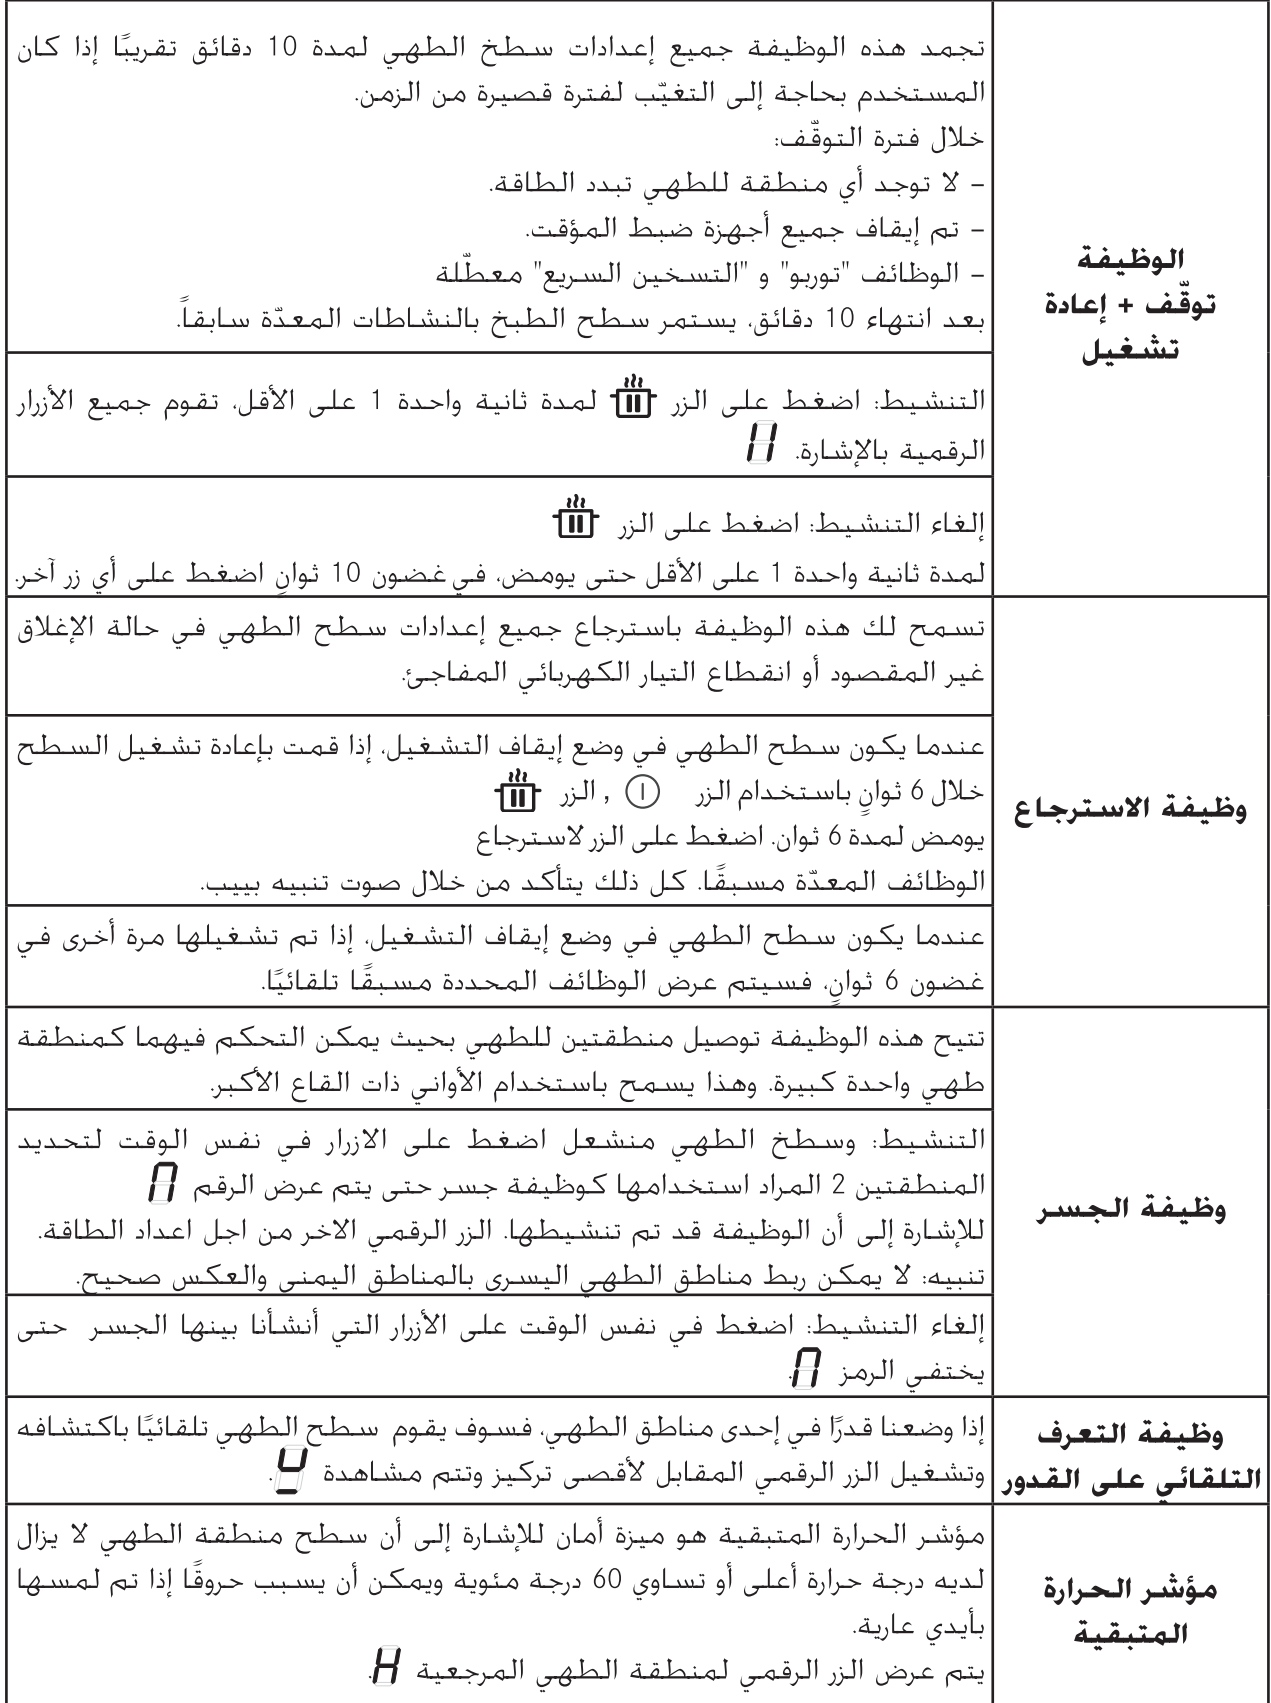 الوظيفة
توقّف + إعادة
تشغيل
تجمد هذه الوظيفة جميع إعدادات سطخ الطهي لمدة 10 دقائق تقريبًا إذا كان
المستخدم بحاجة إلى التغيّب لفترة قصيرة من الزمن.
خلال فترة التوقّف:
– لا توجد أي منطقة للطهي تبدد الطاقة.
– تم إيقاف جميع أجهزة ضبط المؤقت.
– الوظائف "توربو" و "التسخين السريع" معطّلة
بعد انتهاء 10 دقائق، يستمر سطح الطبخ بالنشاطات المعدّة سابقاً.
التنشيط: اضغط على الزر لمدة ثانية واحدة 1 على الأقل، تقوم جميع الأزرار
الرقمية بالإشارة. II
إلغاء التنشيط: اضغط على الزر
لمدة ثانية واحدة 1 على الأقل حتى يومض، في غضون 10 ثوانٍ اضغط على أي زر آخر.
وظيفة الاسترجاع
تسمح لك هذه الوظيفة باسترجاع جميع إعدادات سطح الطهي في حالة الإغلاق
غير المقصود أو انقطاع التيار الكهربائي المفاجئ.
عندما يكون سطح الطهي في وضع إيقاف التشغيل، إذا قمت بإعادة تشغيل السطح
خلال 6 ثوانٍ باستخدام الزر , الزر
يومض لمدة 6 ثوان. اضغط على الزر لاسترجاع
الوظائف المعدّة مسبقًا. كل ذلك يتأكد من خلال صوت تنبيه بييب.
عندما يكون سطح الطهي في وضع إيقاف التشغيل، إذا تم تشغيلها مرة أخرى في
غضون 6 ثوانٍ، فسيتم عرض الوظائف المحددة مسبقًا تلقائيًا.
وظيفة الجسر
تتيح هذه الوظيفة توصيل منطقتين للطهي بحيث يمكن التحكم فيهما كمنطقة
طهي واحدة كبيرة. وهذا يسمح باستخدام الأواني ذات القاع الأكبر.
التنشيط: وسطخ الطهي منشعل اضغط على الازرار في نفس الوقت لتحديد
المنطقتين 2 المراد استخدامها كوظيفة جسر حتى يتم عرض الرقم Π
للإشارة إلى أن الوظيفة قد تم تنشيطها. الزر الرقمي الاخر من اجل اعداد الطاقة.
تنبيه: لا يمكن ربط مناطق الطهي اليسرى بالمناطق اليمنى والعكس صحيح.
إلغاء التنشيط: اضغط في نفس الوقت على الأزرار التي أنشأنا بينها الجسر حتى
يختفي الرمز Π.
وظيفة التعرف
التلقائي على القدور
إذا وضعنا قدرًا في إحدى مناطق الطهي، فسوف يقوم سطح الطهي تلقائيًا باكتشافه
وتشغيل الزر الرقمي المقابل لأقصى تركيز وتتم مشاهدة .
مؤشر الحرارة
المتبقية
مؤشر الحرارة المتبقية هو ميزة أمان للإشارة إلى أن سطح منطقة الطهي لا يزال
لديه درجة حرارة أعلى أو تساوي 60 درجة مئوية ويمكن أن يسبب حروقًا إذا تم لمسها
بأيدي عارية.
يتم عرض الزر الرقمي لمنطقة الطهي المرجعية H.